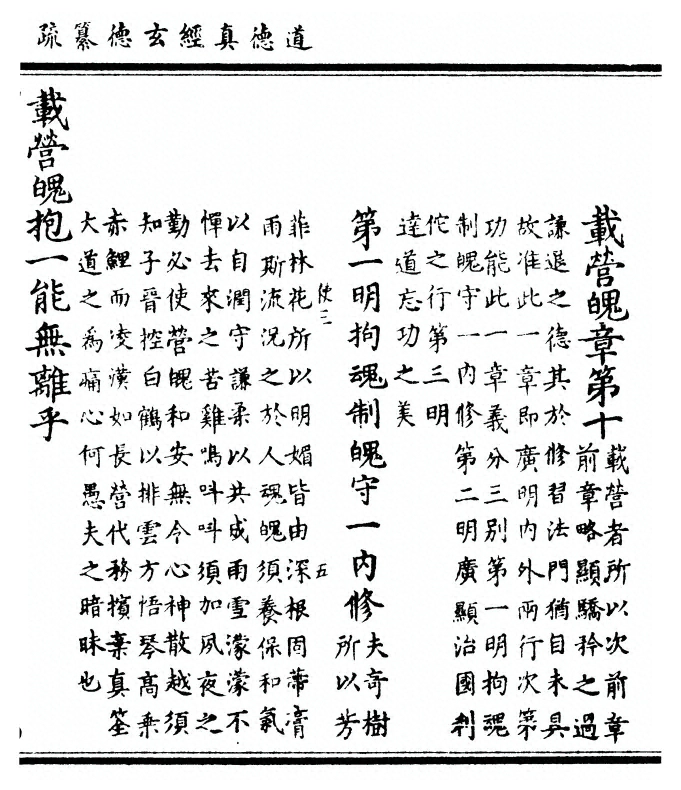 道德真經玄德纂疏
載營魄章第十
載營者所以次前章
前章略顯驕矜之過
謙退之德其於修習法門猶自未具
故准此一章即廣明內外兩行次第
功能此一章義分三別第一明拘魂
制魄守一內修第二明廣顯治國利
佗之行第三明
達道忘功之美
第一明拘魂制魄守一內修
夫奇樹
所以芳
使三 五
菲林花所以明媚皆由深根固蒂膏
雨斯流況之於人魂魄須養保和氣
以自潤守謙柔以共成雨雪濛濛不
憚去來之苦雞鳴呌呌須加夙夜之
勤必使營魄和安無令心神散越須
知子晉控白鶴以排雲方悟琴高乘
赤鯉而凌漢如長營代務擯棄真筌
大道之爲痛心何愚夫之暗昧也
載營魄抱一能無離乎